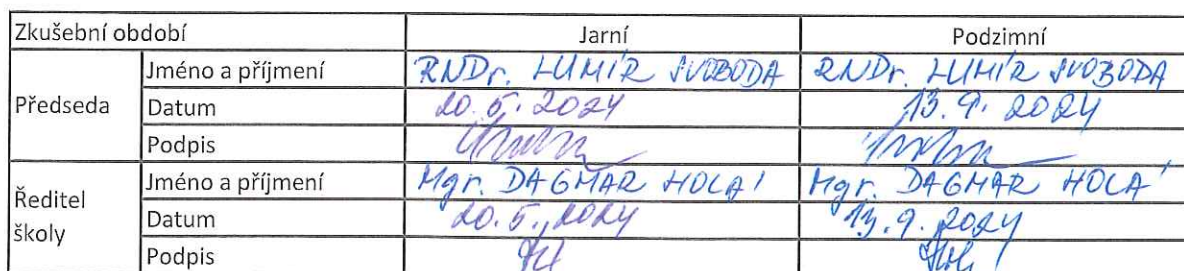 Zkušební období Jarní Podzimní
Předseda Jméno a příjmení RNDr. LUMÍR SVOBODA RNDr. LUMÍR SVOBODA
Datum 20. 5. 2024 13. 9. 2024
Podpis
Ředitel školy Jméno a příjmení Mgr. DAGMAR HOLÁ Mgr. DAGMAR HOLÁ
Datum 20. 5. 2024 13. 9. 2024
Podpis